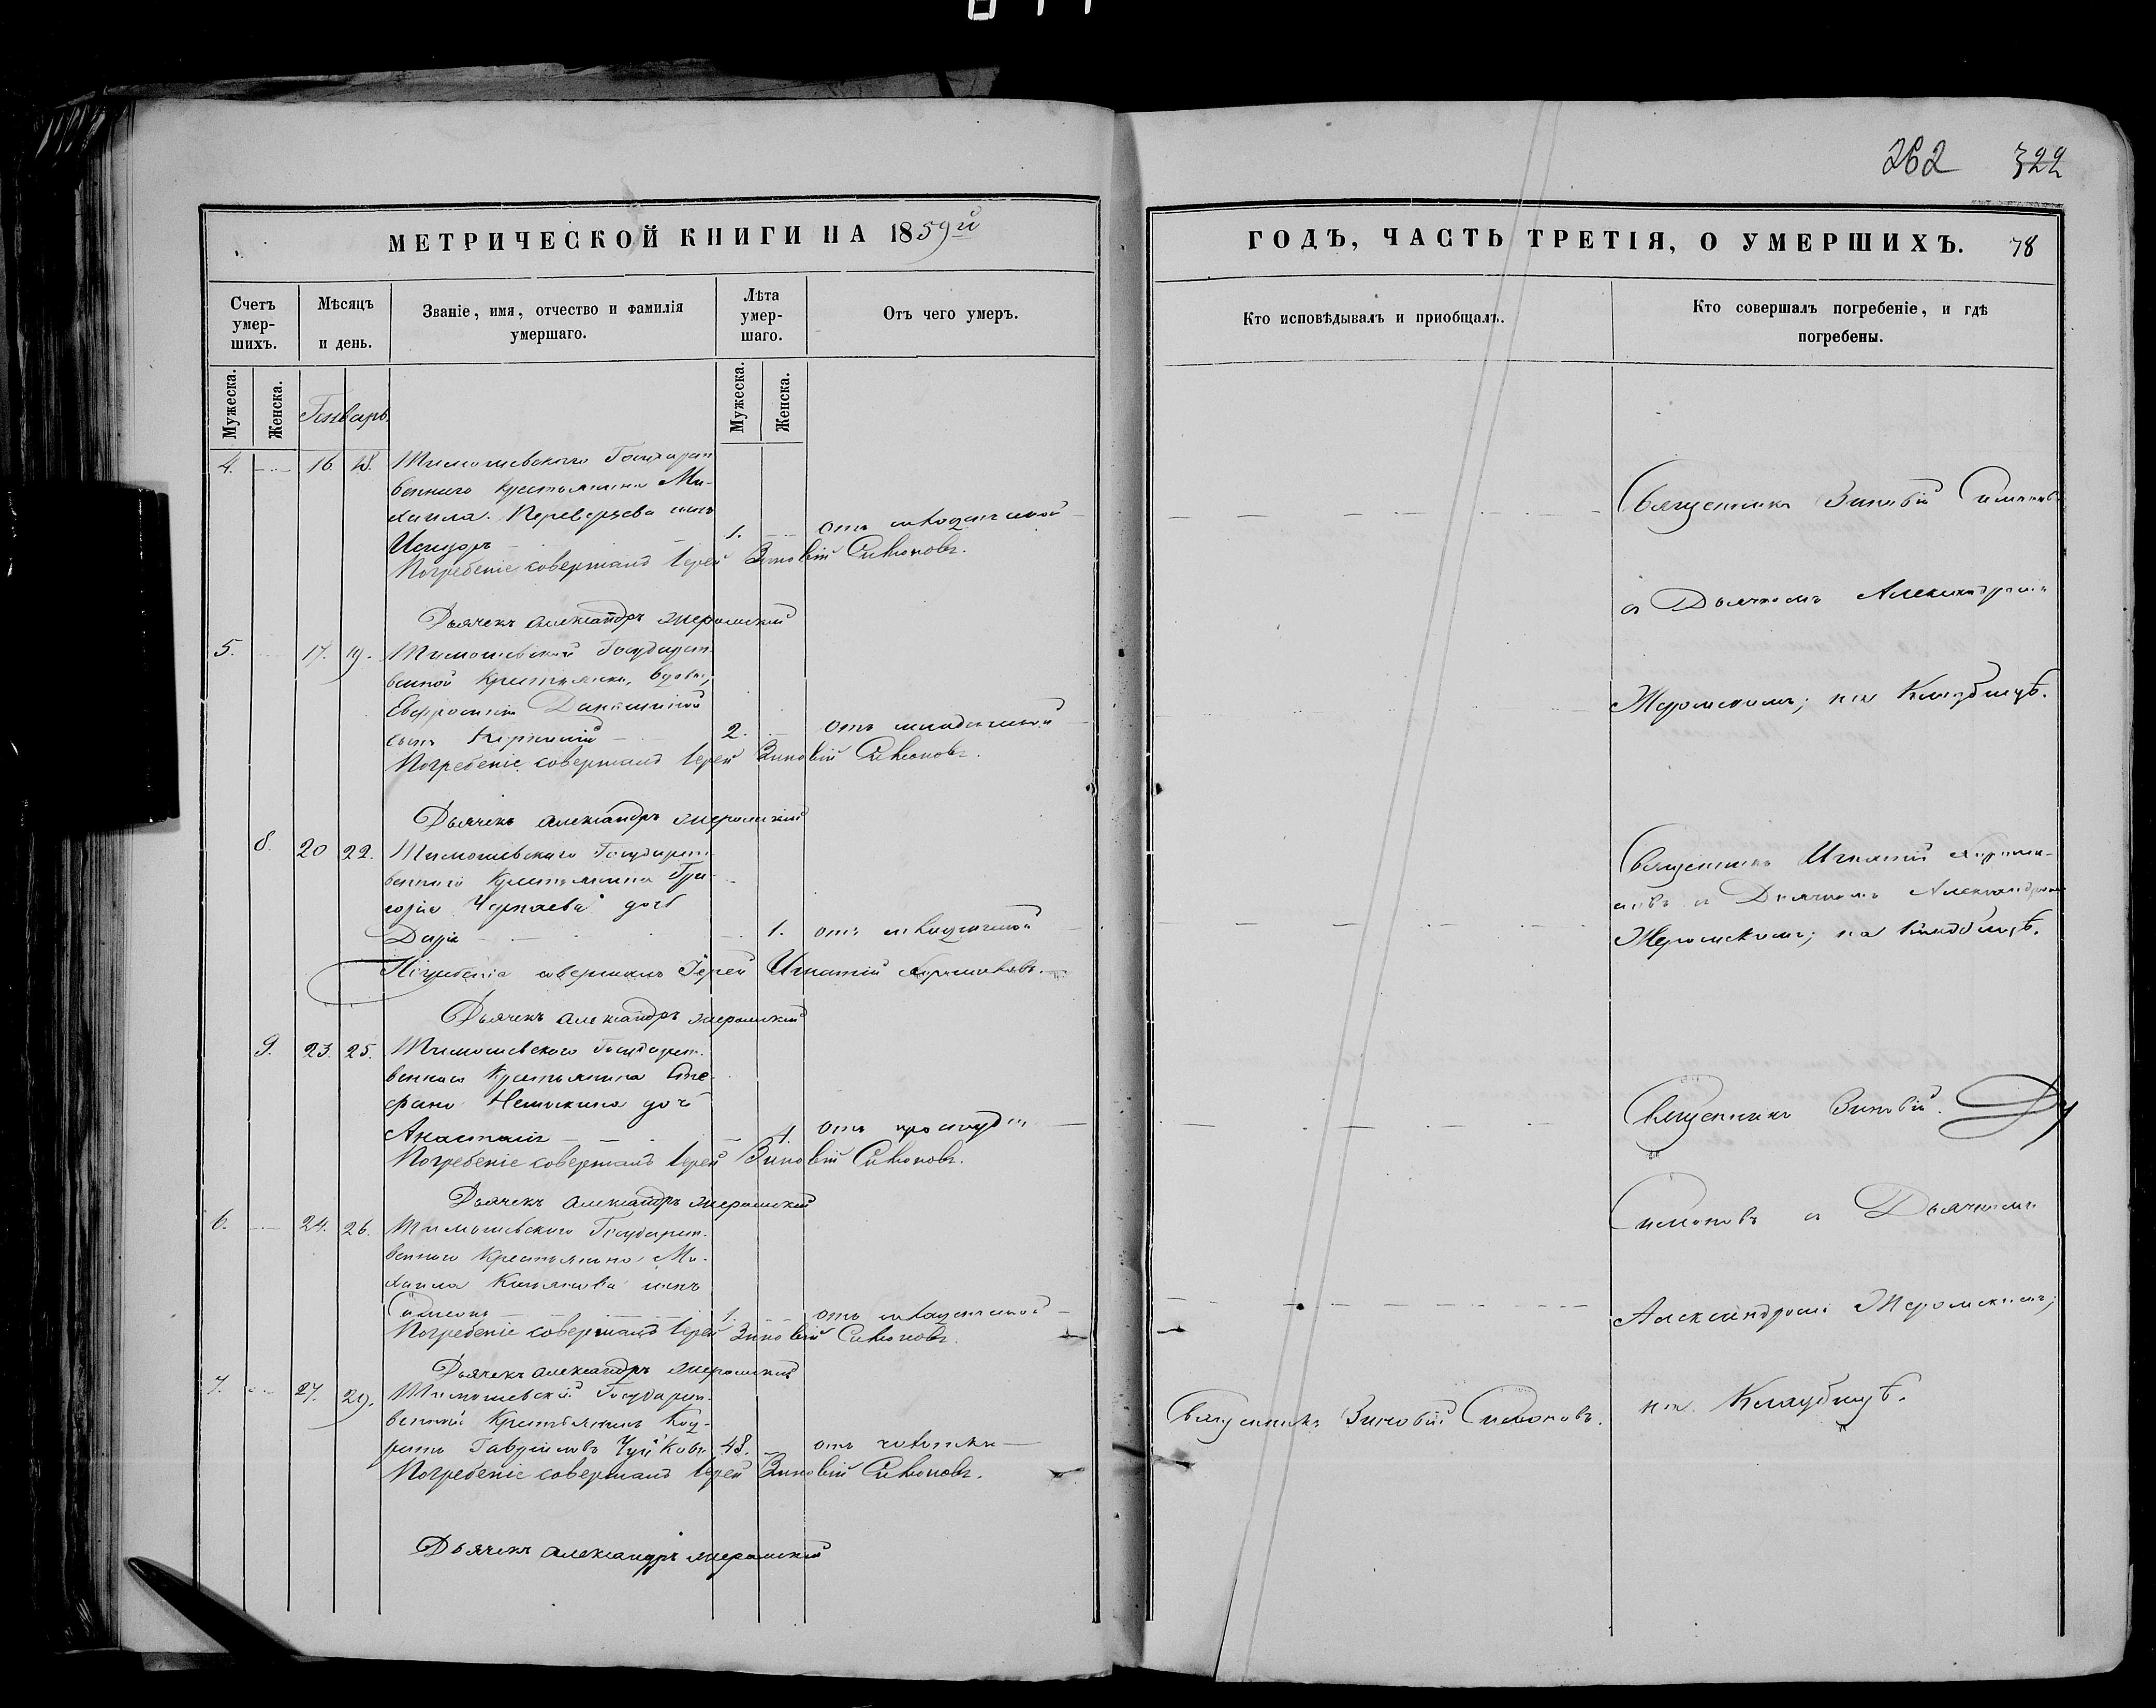 262 322
МЕТРИЧЕСКОЙ КНИГИ НА 1859й
ГОДЪ, ЧАСТЬ ТРЕТІЯ, О УМЕРШИХЪ. 78
Счетъ умер-шихъ.
Мѣсяцъ и день.
Званіе, имя, отчество и фамилія умершаго.
Лѣта умер-шаго.
Отъ чего умеръ.
Кто исповѣдывалъ и приобщалъ.
Кто совершалъ погребеніе, и гдѣ погребены.
Мужеска.
Женска.
Генварь.
Мужеска.
Женска.
4. 16. 18. Тимошевского Государст
веннаго крестьянина Ми-
хаила Переверзева сынъ
1. отъ
Погребеніе совершалъ Іерей Зиновій Симоновъ.
Дьячекъ Александръ Жеромскій
5. 17. 19. Тимошевской Государст-
венной Крестьянки, вдовы,
Евфросиніи
сынъ 2. отъ
Погребеніе совершалъ Іерей Зиновій Симоновъ.
Дьячекъ Александръ Жеромскій
8. 20 22. Тимошевского Государст-
веннаго Крестьянина Гри-
горія Чернаева дочь
Дарія 1. отъ
Погребеніе совершалъ Іерей Игнатій
Дьячекъ Александръ Жеромскій
9. 23. 25. Тимошевского Государст-
веннаго Крестьянина Сте-
фана дочь
Анастасія 1. отъ простуды
Погребеніе совершалъ Іерей Зиновій Симоновъ.
Дьячекъ Александръ Жеромскій
6. 24. 26. Тимошевского Государст-
веннаго Крестьянина Ми-
хаила сынъ
Симеонъ 1. отъ
Погребеніе совершалъ Іерей Зиновій Симоновъ.
Дьячекъ Александръ Жеромскій
7. 27. 29. Тимошевскій Государст-
венный Крестьянинъ Код-
ратъ Гавриловъ Чуйковъ 48. отъ чахотки
Погребеніе совершалъ Іерей Зиновій Симоновъ.
Дьячекъ Александръ Жеромскій
Священникъ Зиновій Симоновъ
съ Дьячкомъ Александромъ
Жеромскимъ; на Кладбищѣ.
Священникъ Игнатій
съ Дьячкомъ Александромъ
Жеромскимъ; на Кладбищѣ.
Священникъ Зиновій
Симоновъ съ Дьячкомъ
Александромъ Жеромскимъ;
на Кладбищѣ.
Священникъ Зиновій Симоновъ.